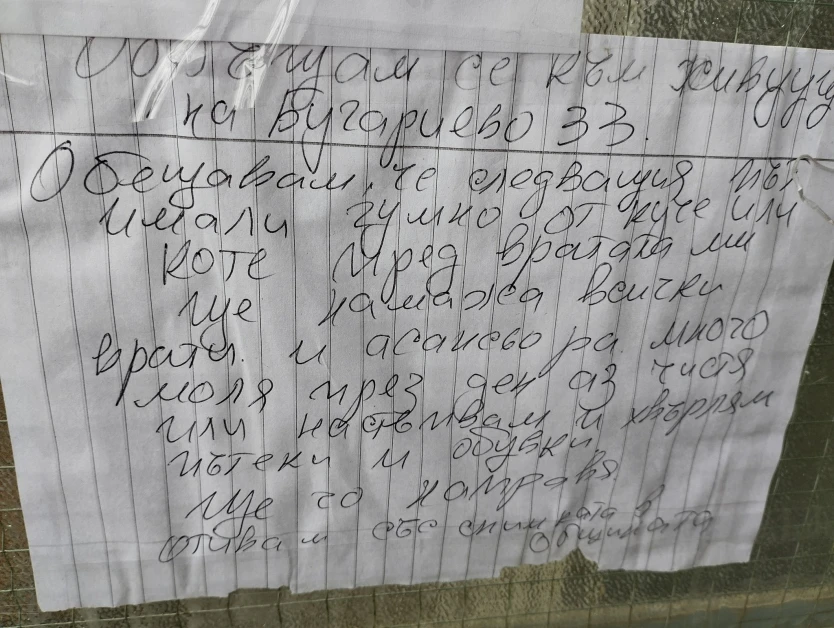 Обръщам се към живущ
на Бугариево 33.
Обещавам, че следващия път
имали гумно от куче или
коте пред вратата ми
ще намажа всички
врати. и асансьора. много
моля през ден аз чистя
или настъпвам и хвърлям
пътеки и обувки
ще го направя.
отивам със снимката в
Общината